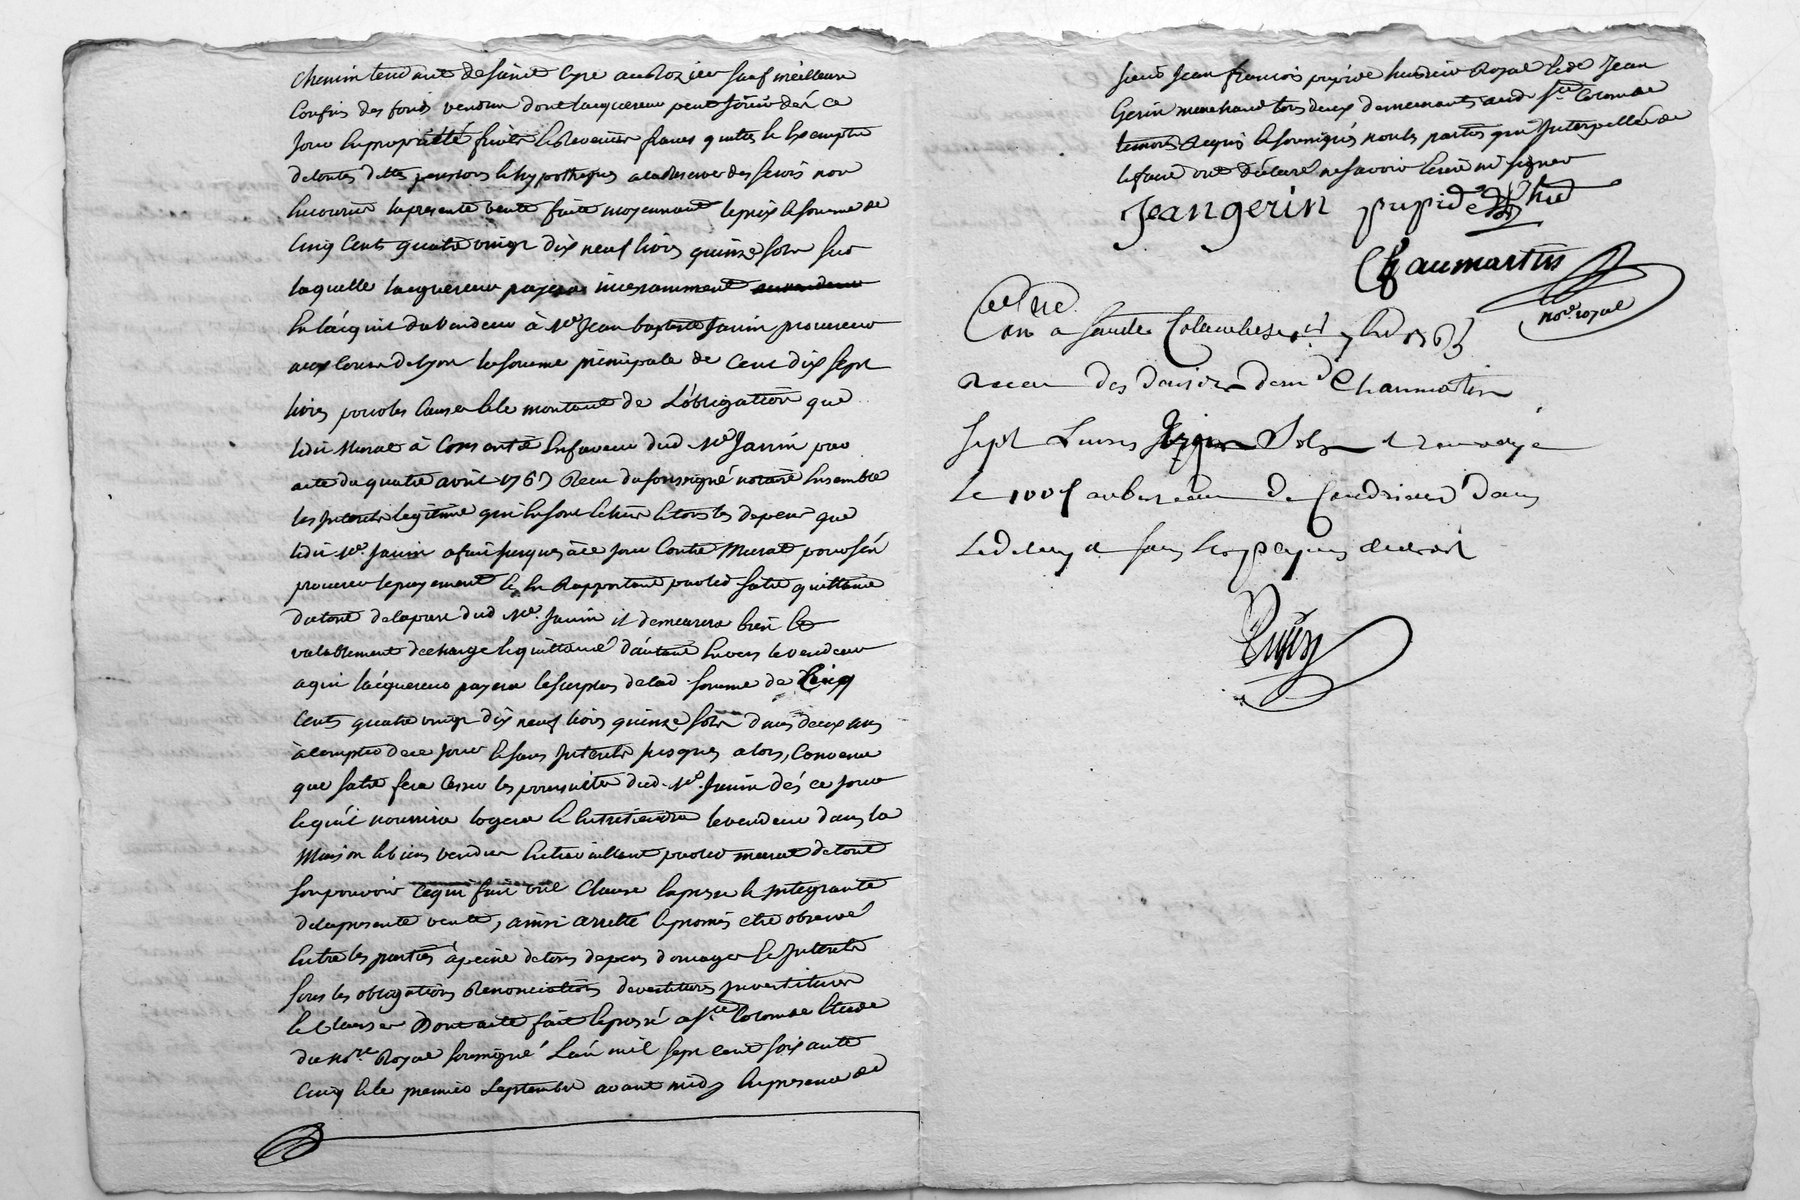 chemin tendant de saint Cyre au Rozier sauf meilleurs
Confins des fonds vendus dont lacquereur peut jouir dés ce
jour en proprieté fruits et revenus francs quittes et exemptes
de toutes dettes pensions et hypotheques a la reserve des servis non
encourus la presente vente faite moyennant le prix et somme de
Cinq Cents quatre vingt dix neuf livres quinze sols sur
laquelle lacquereur payera incessamment
en l'acquit du vendeur à Me Jean baptiste Janin procureur
aux Cours de Lyon la somme principale de Cent dix sept
livres pour les Causes et le montant de L'obligation que
ledit Murat à Consentie en faveur dud. Me Janin par
acte du quatre avril 1763 Recu du soussigné notaire Ensemble
les jnterets legitimes qui En sont et tous les depens que
ledit Me. Janin a fait jusques à ce jour Contre Murat pour s'en
procurer le payement et en Rapportant par led Satre quittance
du tout de la part dud Me. Janin il demeurera bien et
valablement dechargé et quitte d'autant envers le vendeur
a qui l'acquereur payera le surplus de lad. somme de Cinq
Cents quatre vingt dix neuf livres quinze sols dans deux ans
à compter de ce jour et sans jnterets jusques alors, Convenu
que Satre fera Cesser les poursuites dud. Me. Janin dés ce jour
et qu'il nourrira logera et Entretiendra le vendeur dans la
Maison et biens vendus En travaillant par led murat de tout
son pouvoir Ce qui fait une Clause expresse et jntegrante
de la presente vente, ainsi arretté et promis etre observé
Entre les parties à peine de tous depens domages et jnterets
sous les obligations Renonciations devestitures jnvestitures
et Clauses Dont acte fait et passé a Ste Colombe Etude
du nore. Royal soussigné L'an mil sept cent soixante
Cinq et le premier Septembre avant midy En presence de
sieurs Jean francois pupide huissier Royal et de Jean
Gerin marchand tous deux demeurants aud. Ste Colombe
temoins Requis et soussignés non les parties qui jnterpellées de
le faire ont déclaré ne savoir Ecrire ni signer
Jean gerin pupide
Chaumartin
nore. royal
a Sainte Colombe 1765
Recu des deniers de md Chaumartin
sept Livres Sols et renvoyé
Le 100e au bureau de Condrieux dans